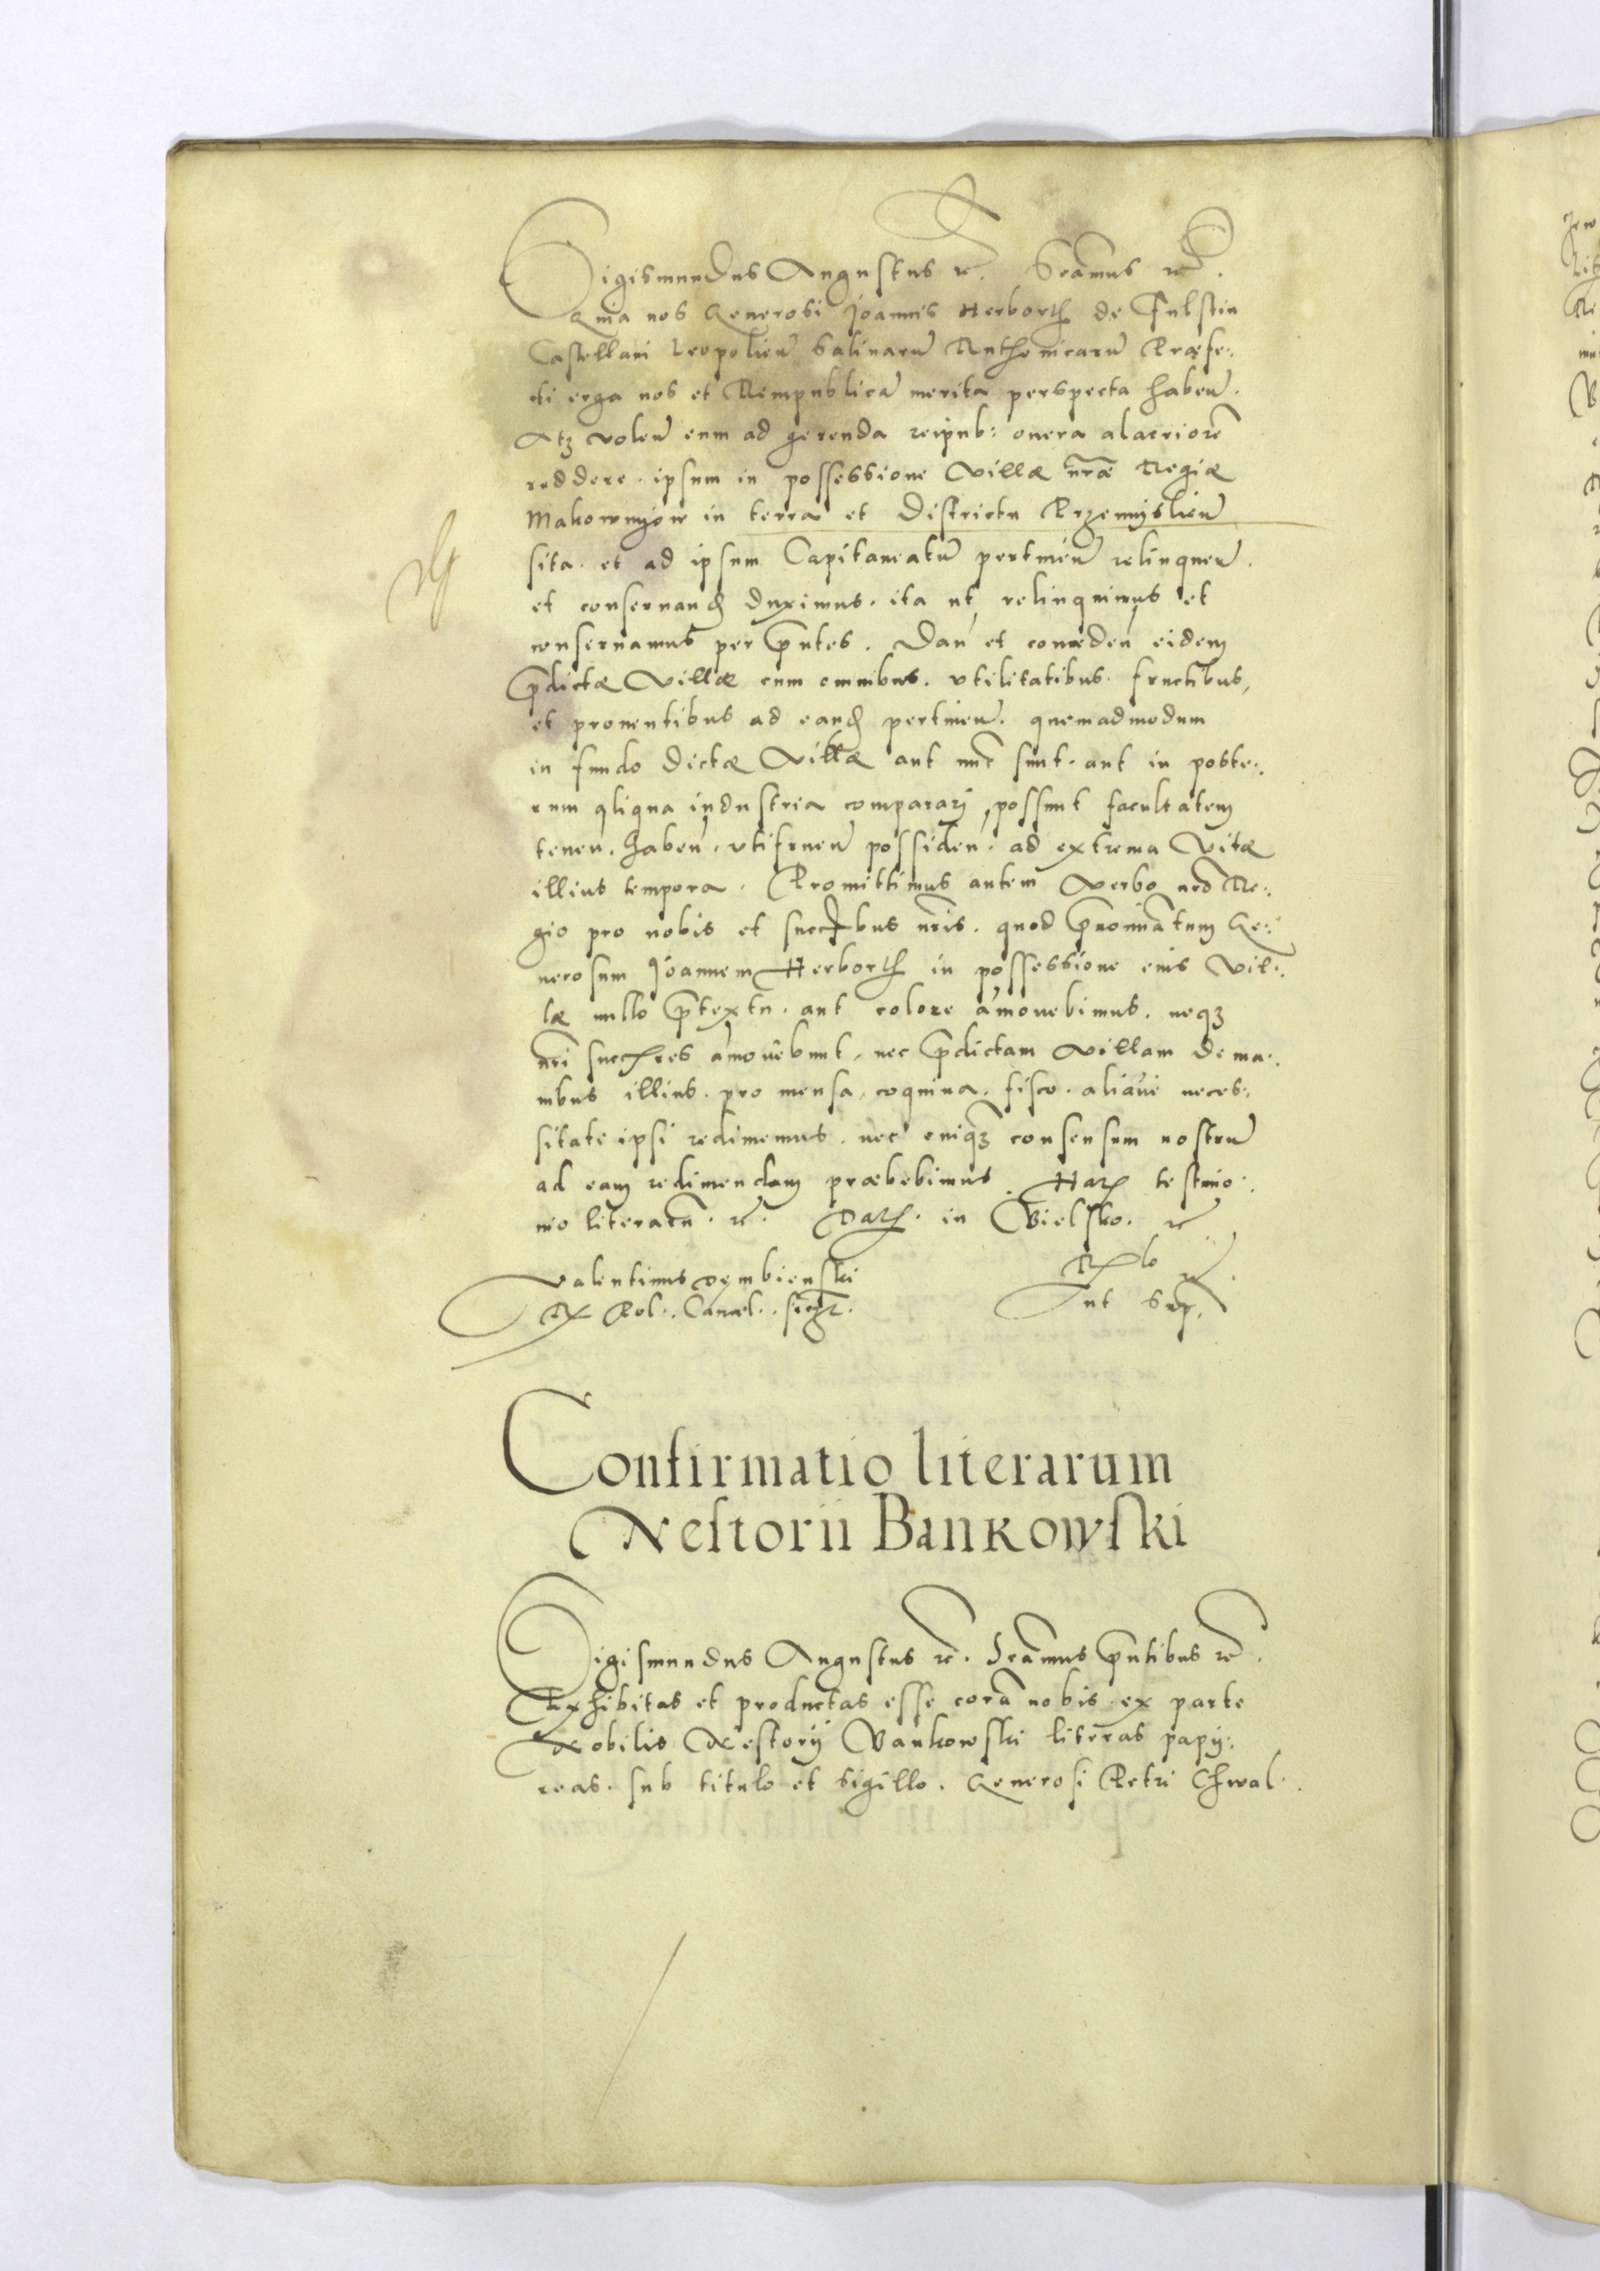 Sigismundus Augustus &c. Scamus &c.
Quia nos Generosi Joannis Herborth de Fulstin
Castellani Leopolien Salinaru Ruthenicaru Præfe:
cti erga nos et Rempublica merita perspecta haben.
Atq volen eum ad gerenda reipub: onera alacriore
reddere. ipsum in possessione Villæ nræ Regiæ
Makowniow in terra et Districtu Przemyslien
sita. et ad ipsum Capitaneatu pertinen relinquen.
et conseruand duximus. ita ut relinquimus et
conseruamus per pntes. Dan et conceden eidem
pdictæ Villæ cum omnibus. vtilitatibus. fructibus,
et prouentibus ad eand pertinen. quemadmodum
in fundo dictæ Villæ aut nuc sunt. aut in poste:
rum aliqua industria comparari possunt facultatem
tenen. haben. vtifruen possiden. ad extrema Vitæ
illius tempora. Promittimus autem Verbo nro Re:
gio pro nobis et succbus nris. quod pnominatum Ge:
nerosum Joannem Herborth in possessione eius Vil:
læ nullo ptextu. aut colore amouebimus. neq
nri succres amouebunt, nec pdictam Villam de ma:
nibus illius. pro mensa, coquina. fisco. aliaue neces:
sitate ipsi redimemus. nec cuiq consensum nostru
ad eam redimendam præbebimus. Har testimo:
nio literaru. &c. Dat. in Bielsko. &c
Valentinus Dembienski
R Pol. Cancel. . sszt.
Rlo &c.
ut Sup.
Confirmatio literarum
Nestorii Bankowski
Sigismundus Augustus &c. Scamus pntibus &c.
Exhibitas et productas esse cora nobis ex parte
Nobilis Nestorij Bankowski literas papij:
reas. sub titulo et sigillo. Generosi Petri Chwal.